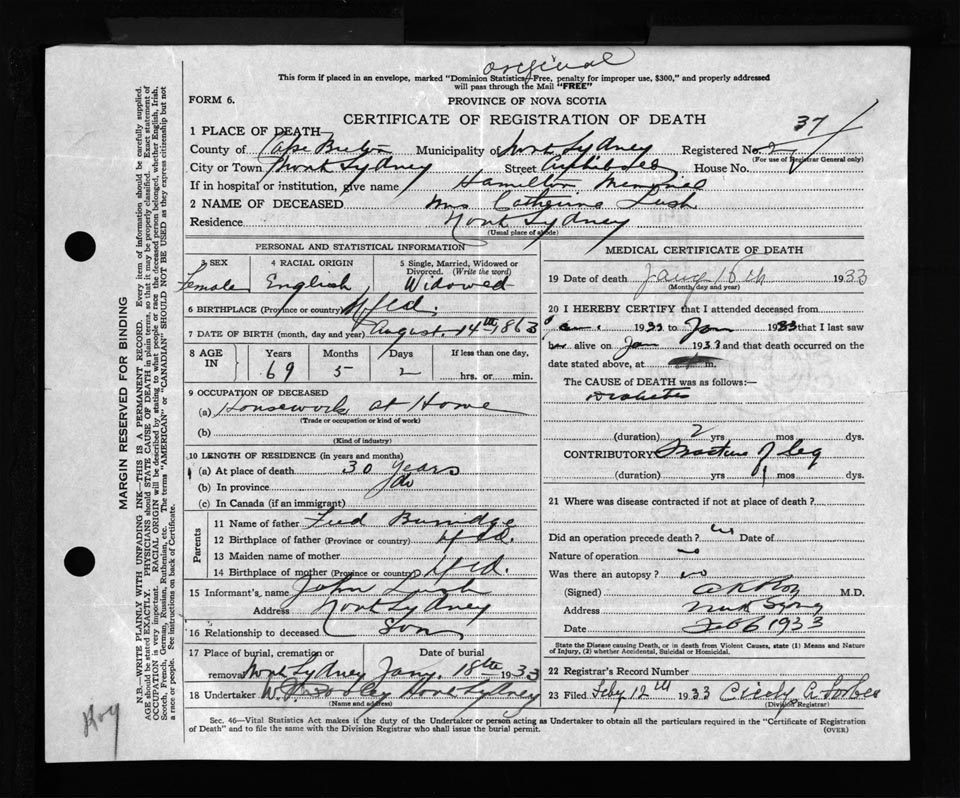 original
This form if placed in an envelope, marked "Dominion Statistics—Free, penalty for improper use, $300," and properly addressed
will pass through the Mail "FREE"
FORM 6.
PROVINCE OF NOVA SCOTIA
CERTIFICATE OF REGISTRATION OF DEATH
37
1 PLACE OF DEATH
County of Cape Breton Municipality of North Sydney Registered No.
(For use of Registrar General only)
City or Town North Sydney Street Archibald House No.
If in hospital or institution, give name Hamilton Memorial
2 NAME OF DECEASED Mrs Catherine Lush
Residence North Sydney
(Usual place of abode)
PERSONAL AND STATISTICAL INFORMATION
3 SEX 4 RACIAL ORIGIN 5 Single, Married, Widowed or Divorced. (Write the word)
Female English Widowed
6 BIRTHPLACE (Province or country) Nfld.
7 DATE OF BIRTH (month, day and year) August. 14th 1863
8 AGE IN Years Months Days If less than one day,
69 5 2 hrs. or min.
9 OCCUPATION OF DECEASED
(a) Housework at Home
(Trade or occupation or kind of work)
(b)
(Kind of industry)
10 LENGTH OF RESIDENCE (in years and months)
(a) At place of death 30 years
(b) In province do
(c) In Canada (if an immigrant)
Parents
11 Name of father Fred Burridge
12 Birthplace of father (Province or country) Nfld.
13 Maiden name of mother
14 Birthplace of mother (Province or country) Nfld.
15 Informant's name John Lush
Address North Sydney
16 Relationship to deceased Son
17 Place of burial, cremation or removal Date of burial
North Sydney Jany. 18th 1933
18 Undertaker North Sydney
(Name and address)
MEDICAL CERTIFICATE OF DEATH
19 Date of death Jany 16th 1933
(Month, day and year)
20 I HEREBY CERTIFY that I attended deceased from
Jan. 1933 to Jan 1933 that I last saw
her alive on Jan 1933 and that death occurred on the
date stated above, at m.
The CAUSE of DEATH was as follows:—
Diabetes
(duration) 2 yrs mos dys.
CONTRIBUTORY Fracture of leg
(duration) yrs mos dys.
21 Where was disease contracted if not at place of death?
Did an operation precede death? Date of
Nature of operation no
Was there an autopsy? no
(Signed) M.D.
Address North Sydney
Date Feb 6 1933
State the Disease causing Death, or in death from Violent Causes, state (1) Means and Nature
of Injury, (2) whether Accidental, Suicidal or Homicidal.
22 Registrar's Record Number
23 Filed Feby 12th 1933 Cicely A. Forbes
(Division Registrar)
Sec. 46—Vital Statistics Act makes it the duty of the Undertaker or person acting as Undertaker to obtain all the particulars required in the "Certificate of Registration
of Death" and to file the same with the Division Registrar who shall issue the burial permit.
(OVER)
MARGIN RESERVED FOR BINDING
N.B.—WRITE PLAINLY WITH UNFADING INK—THIS IS A PERMANENT RECORD. Every item of information should be carefully supplied.
AGE should be stated EXACTLY. PHYSICIANS should STATE CAUSE OF DEATH in plain terms, so that it may be properly classified. Exact statement of
OCCUPATION is very important. RACIAL ORIGIN will be described by stating to what people or race the deceased person belonged, whether English, Irish,
Scotch, French, German, Russian, Ruthenian, etc. The terms "AMERICAN" or "CANADIAN" SHOULD NOT BE USED as they express citizenship but not
a race or people. See instructions on back of Certificate.